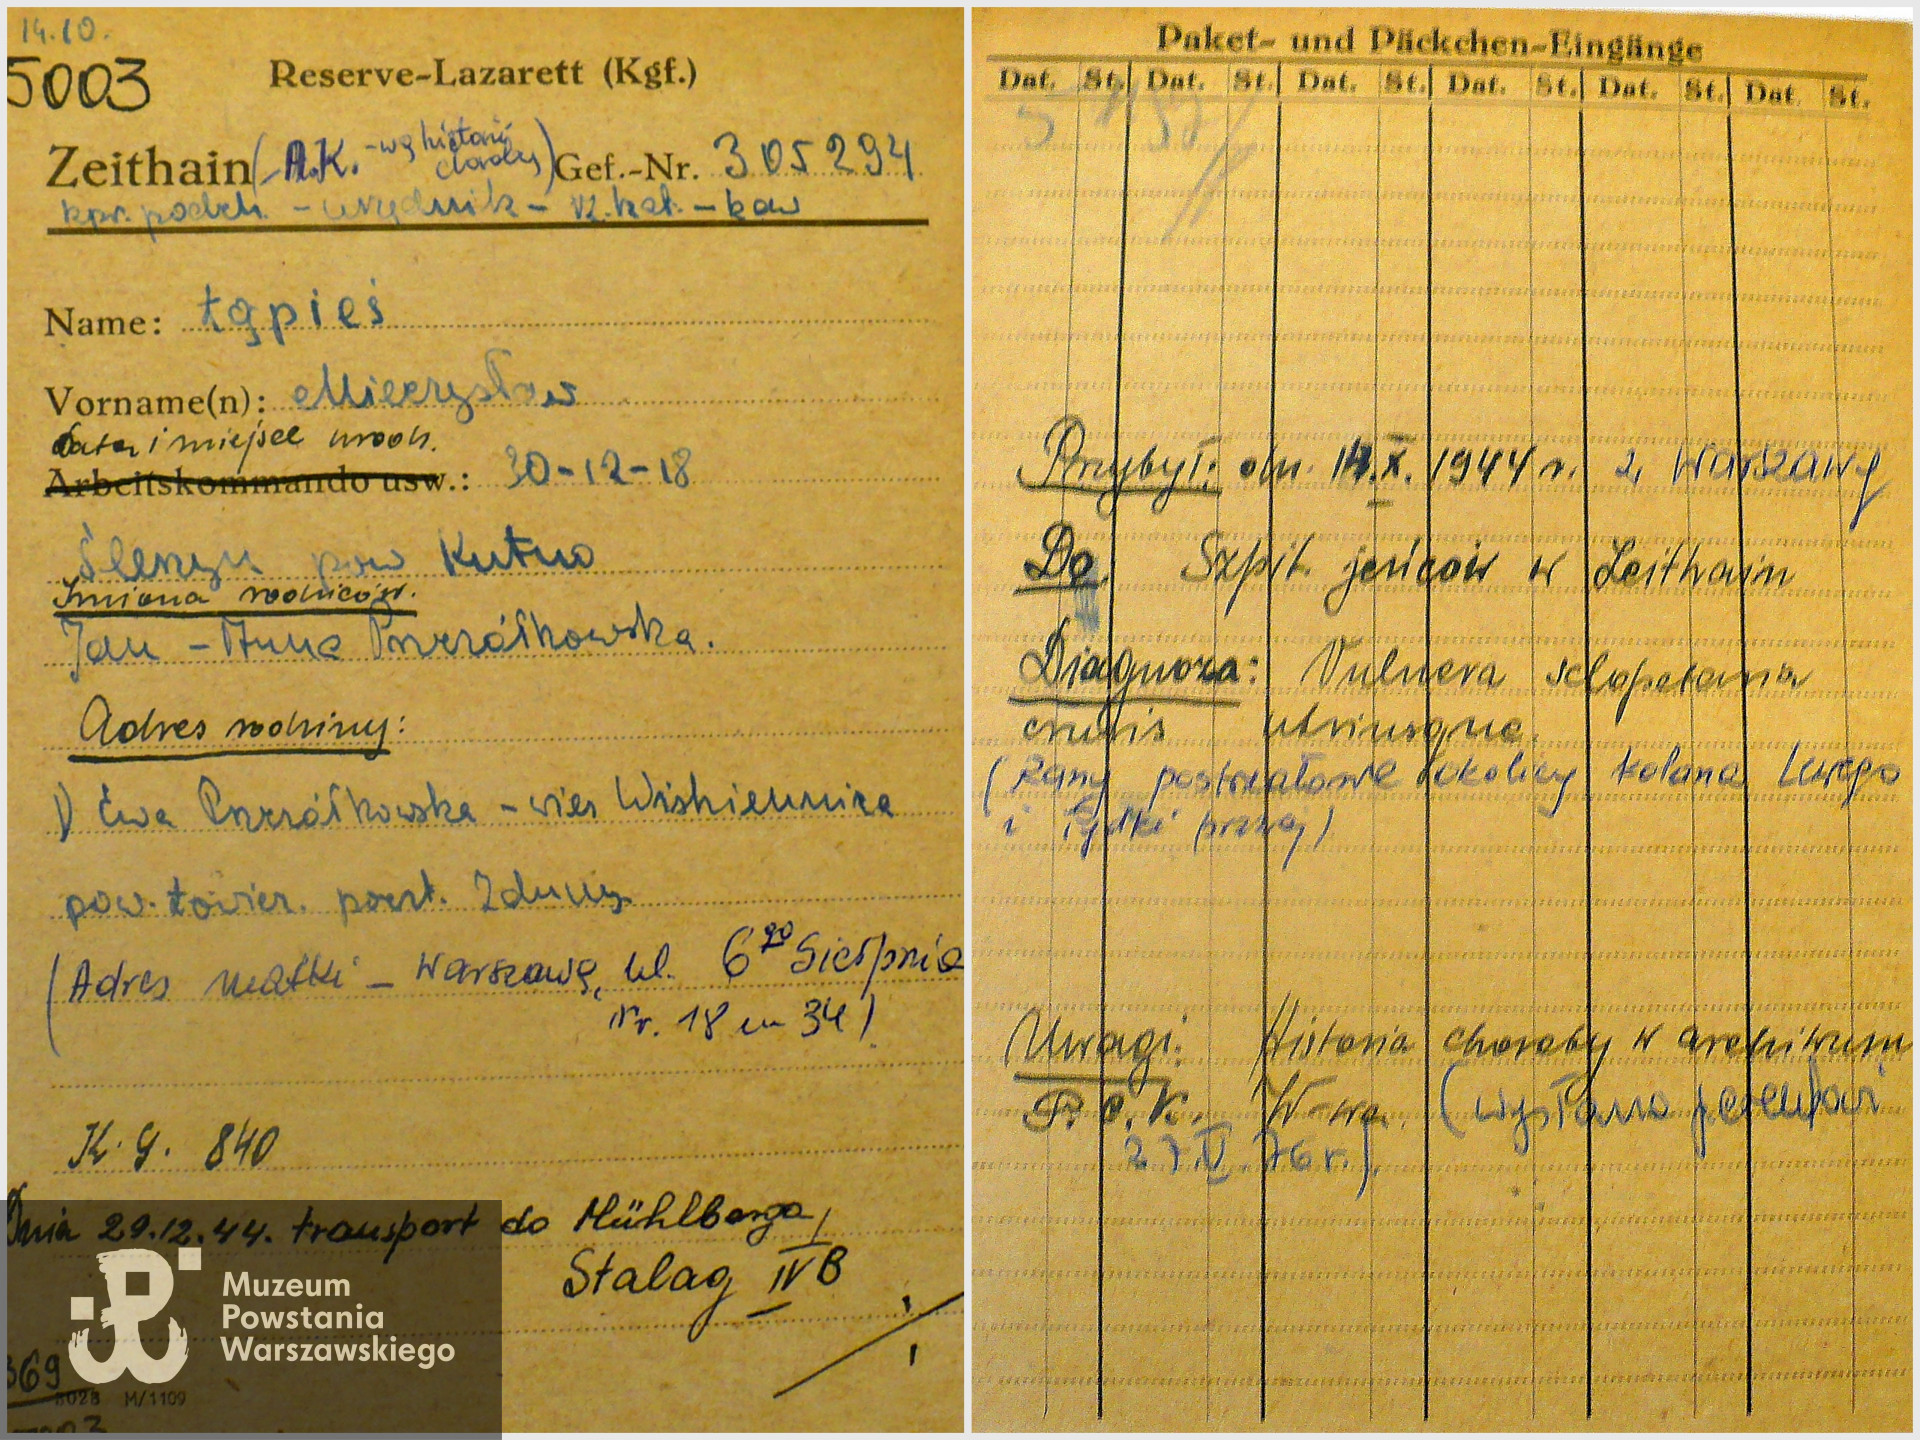 14.10.
5003
Reserve-Lazarett (Kgf.)
Zeithain (A.K. - wg historii choroby) Gef.-Nr. 305294
kpr. podch. - urzędnik - rz. kat. - kaw
Name: Łąpieś
Vorname(n): Mieczysław
Data i miejsce urodz.
Arbeitskommando usw.: 30-12-18
pow Kutno
Imiona rodziców.
Jan - Anna Pszczółkowska.
Adres rodziny:
1) Ewa Pszczółkowska - wieś Wiskiennica
pow. Łowicz. poczt. Zduny
(Adres matki - Warszawa, ul. 6go Sierpnia
Nr. 18 m 34)
K.G. 840
Dnia 29.12.44. transport do Mühlberga
Stalag IVB
369
8028 M/1109
5003
Muzeum
Powstania
Warszawskiego
Paket- und Päckchen-Eingänge
Dat. St. Dat. St. Dat. St. Dat. St. Dat. St. Dat. St.
Przybył: dn. 14.X.1944 r. z Warszawy
Do Szpit. jeńców w Zeithain
Diagnoza: Vulnera sclopetaria
cruris utriusque.
(Rany postrzałowe okolicy kolana lewego
i łydki prawej)
Uwagi: Historia choroby w archiwum
P.C.K. W-wa. (wysłano
27.V.76 r.).